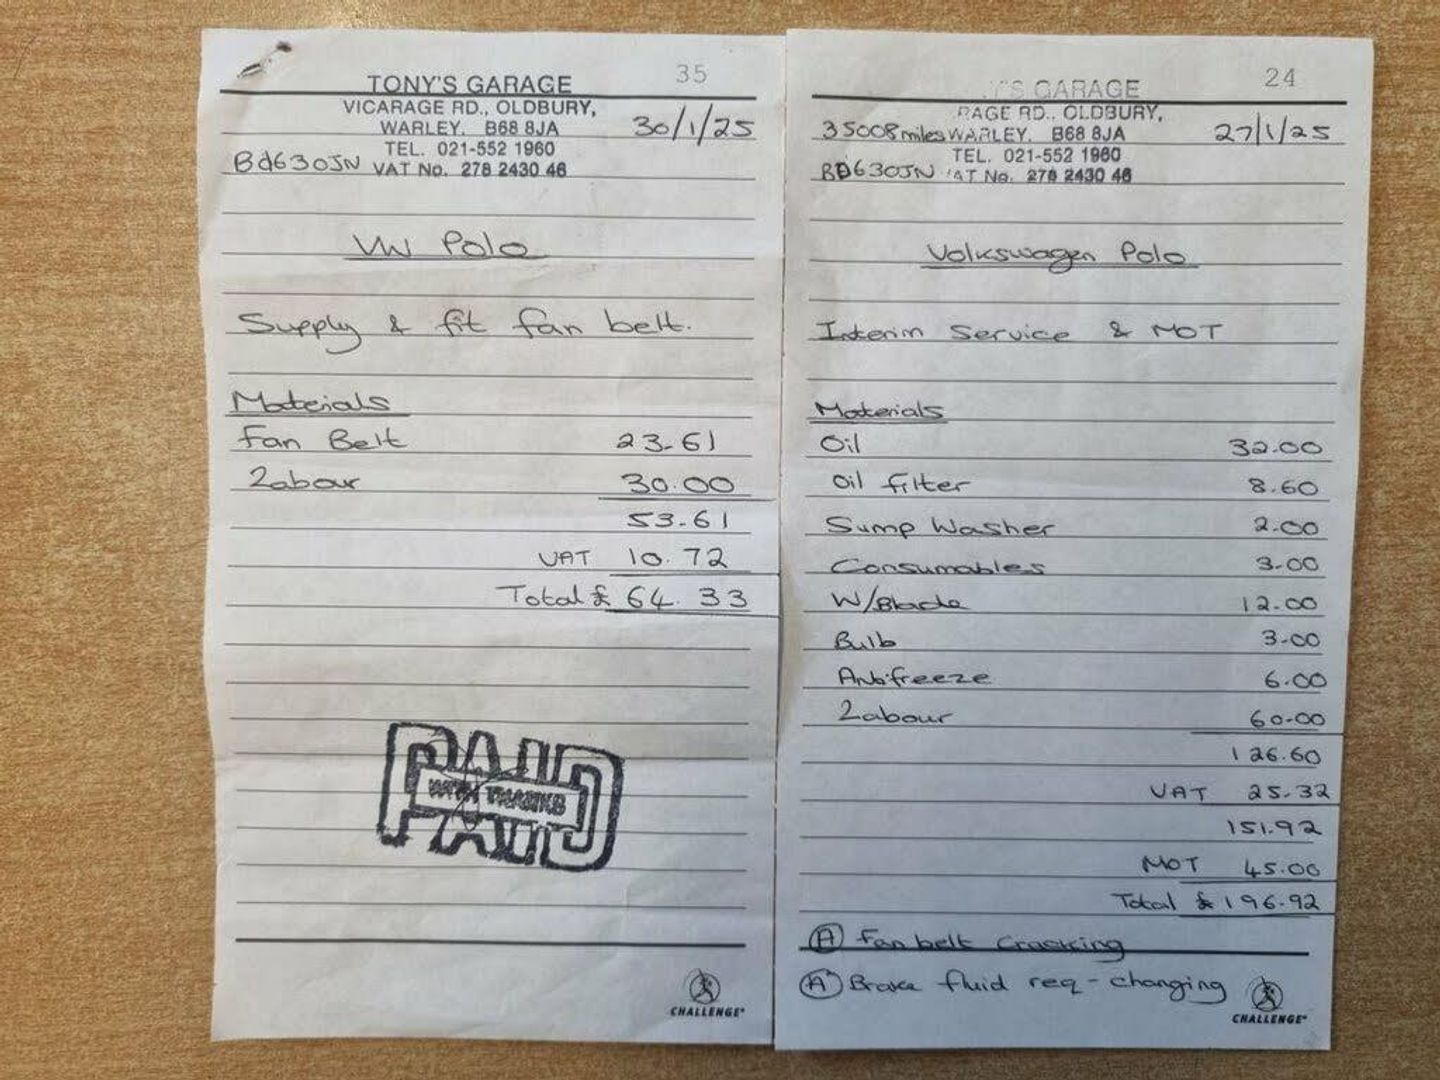 35
TONY'S GARAGE
VICARAGE RD., OLDBURY,
WARLEY. B68 8JA
30/1/25
TEL. 021-552 1960
BD63OJN VAT No. 278 2430 46
VW Polo
Supply & fit fan belt.
Materials
Fan Belt 23-61
Labour 30.00
53-61
VAT 10.72
Total £ 64.33
PAID
WITH THANKS
PAID
CHALLENGE
24
'S GARAGE
RAGE RD., OLDBURY,
35008 miles WARLEY. B68 8JA 27/1/25
TEL. 021-552 1960
BD63OJN AT No. 278 2430 46
Volkswagen Polo
Interim Service & MOT
Materials
Oil 32.00
Oil filter 8.60
Sump Washer 2.00
Consumables 3-00
W/Blade 12.00
Bulb 3-00
Antifreeze 6.00
Labour 60-00
126.60
VAT 25.32
151.92
MOT 45.00
Total £196.92
(A) Fan belt cracking
(A) Brake fluid req- changing
CHALLENGE